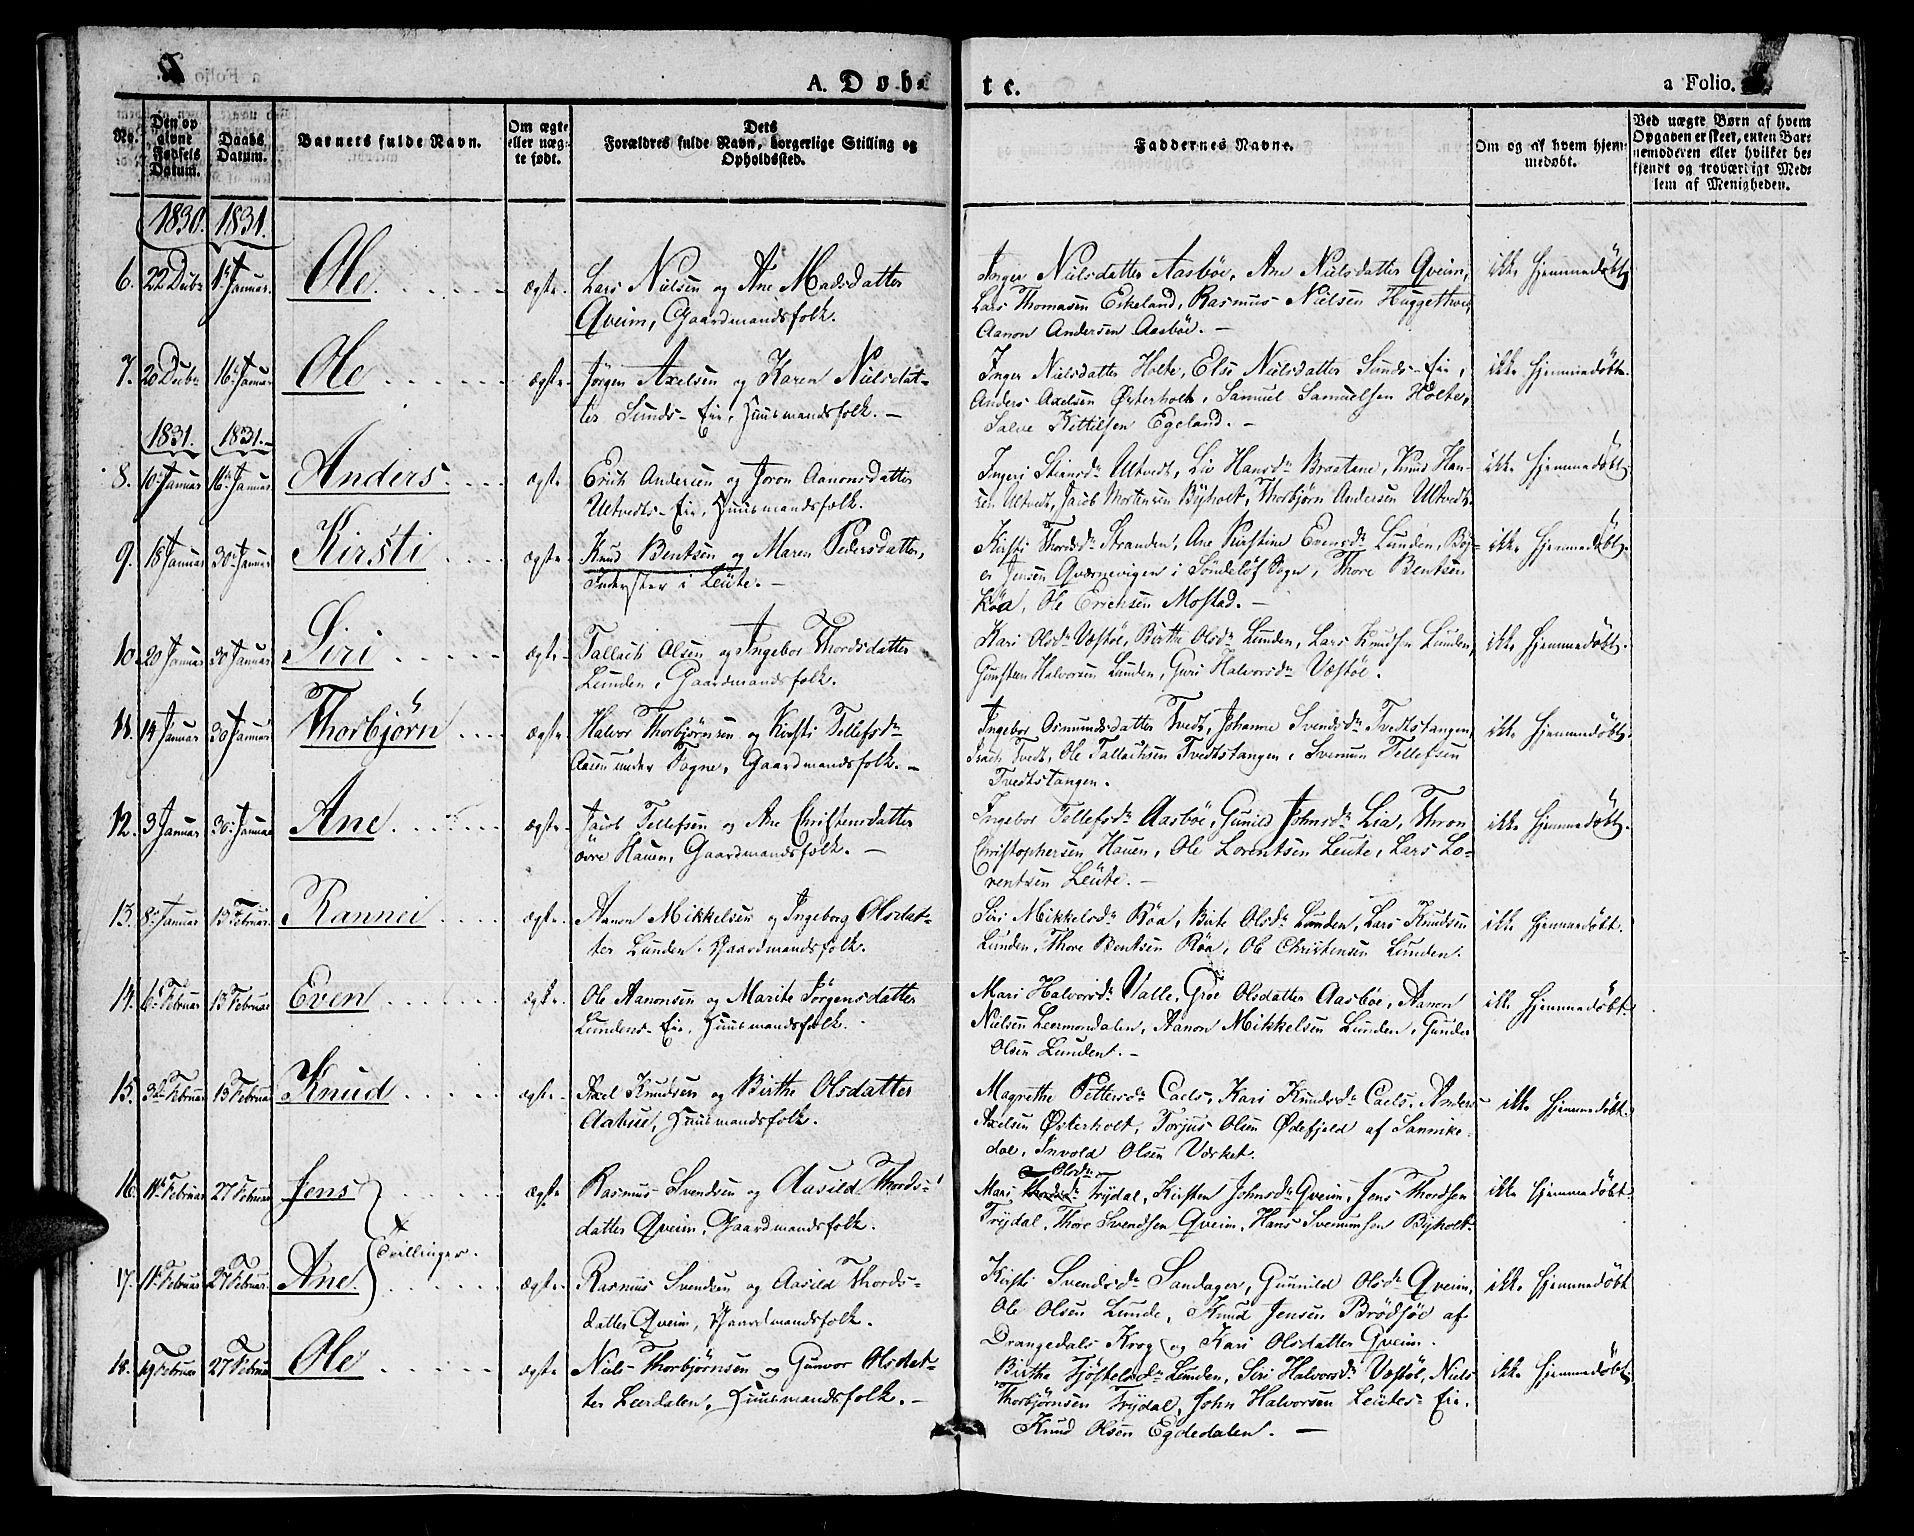 A. Døbte.
a Folio.
No.
Den opgivne Fødsels Datum.
Daabs Datum.
Barnets fulde Navn.
Om ægte eller uægte født.
Dets Forældres fulde Navn, borgerlige Stilling og Opholdssted.
Faddernes Navne.
Om og af hvem hjemmedøbt.
Ved uægte Børn af hvem Opgaven er skeet, enten Barnemoderen eller hvilket bekjendt og troværdigt Medlem af Menigheden.
1830. 1831.
6. 22 Decbr 1 Januar. Ole. ægte
Lars Nielsen og Ane Madsdatter
Qveim, Gaardmandsfolk.
Inger Nielsdatter Aasbøe, Ane Nielsdatter Qveim,
Lars Thomasen Eskeland, Rasmus Nielsen
Aanon Andersen Aasbøe. —
ikke hjemmedøbt.
7. 20 Decbr 16 Januar Ole ægte
Jørgen Axelsen og Karen Nielsdat-
ter Sunds-Eie, Huusmandsfolk. —
Inger Nielsdatter Holte, Else Nielsdatter Sunds-Eie,
Anders Axelsen Østerholt, Samuel Samuelsen Holte,
Salve Kittilsen Egeland. —
ikke hjemmedøbt.
1831. 1831.
8. 10 Januar 16 Januar Anders ægte
Erich Andersen og Joron Aanonsdatter
Ultvedts-Eie, Huusmandsfolk.
Ingeri Stiansdr Ultvedt, Liv Hansdr Braatane, Knud Han-
sen Ultvedt, Jacob Mortensen Byholt, Thorbjørn Andersen Ultvedt.
ikke hjemmedøbt.
9. 18 Januar 30 Januar Kirsti ægte
Knud Bentsen og Maren Pedersdatter,
Inderster i Leüte. —
Kirsti Thordsdr Stranden, Ane Kirstine Evensdr Lunden, Bøy-
er Jensen Qvernevigen i Søndeløf Sogn, Thore Bentsen
Røa, Ole Erichsen Mostad. —
ikke hjemmedøbt.
10. 20 Januar 30 Januar Siri ægte
Tallach Olsen og Ingebor Thordsdatter
Lunden, Gaardmandsfolk.
Kari Olsdr Væstøe, Birthe Olsdr Lunden, Lars Knudsen Lunden,
Gunsteen Halvorsen Lunden, Guri Halvorsdr Væstøe.
ikke hjemmedøbt.
11. 14 Januar 30 Januar Thorbjørn ægte
Halvor Thorbjørnsen og Kirsti Tellefsdr
Aasen under Songe, Gaardmandsfolk. —
Ingebor Osmundsdatter Tvedt, Johanne Svendsdr Tvedtstangen,
Isach Tvedt, Ole Tallachsen Tvedtstangen, Svenum Tellefsen
Tvedtstangen.
ikke hjemmedøbt.
12. 3 Januar 30 Januar Ane ægte
Jacob Tellefsen og Ane Christensdatter
øvre Hauen, Gaardmandsfolk. —
Ingebor Tellefsdr Aasbøe, Gunild Johnsdr Lia, Thron
Christophersen Hauen, Ole Lorentsen Leüte, Lars Lo-
rentsen Leüte. —
ikke hjemmedøbt.
13. 8 Januar 13 Februar. Rannei ægte
Aanon Mikkelsen og Ingeborg Olsdat-
ter Lunden, Gaardmandsfolk.
Siri Mikkelsdr Røa, Birte Olsdr Lunden, Lars Knudsen
Lunden, Thore Bentsen Røa, Ole Christensen Lunden.
ikke hjemmedøbt.
14. 6 Februar 13 Februar Even ægte
Ole Aanonsen og Marite Jørgensdatter
Lundens-Eie, Huusmandsfolk.
Mari Halvorsdr Valle, Groe Olsdatter Aasbøe, Aanon
Nielsen Leermondalen, Aanon Mikkelsen Lunden, Gunder
Olsen Lunden. —
ikke hjemmedøbt.
15. 3 Februar 13 Februar Knud ægte
Axel Knudsen og Birthe Olsdatter
Aabue, Huusmandsfolk.
Magrethe Pettersdr Caels, Kari Knudsdr Caels, Anders
Axelsen Østerholt, Torjus Olsen Ødefjeld af Sannike-
dal, Invold Olsen Værket.
ikke hjemmedøbt.
16. 11 Februar 27 Februar Jens ægte
Rasmus Svendsen og Aasild Thords-
datter Qveim, Gaardmandsfolk.
Mari Olsdr Trydal, Kirsten Johnsdr Qveim, Jens Thordsen
Trydal, Thore Svendsen Qveim, Hans Svenumsen Byholt.
ikke hjemmedøbt.
Tvillinger.
17. 11 Februar 27 Februar. Ane ægte
Rasmus Svendsen og Aasild Thords-
datter Qveim, Gaardmandsfolk.
Kirsti Svendsdr Sandager, Gunnild Olsdr Qveim,
Ole Olsen Lunde, Knud Jensen Brødsjøe af
Drangedals Krog og Kari Olsdatter Qveim.
ikke hjemmedøbt
18. 19 Februar 27 Februar Ole ægte
Niels Thorbjørnsen og Gunvor Olsdat-
ter Leerdalen, Huusmandsfolk. —
Birthe Tjøstelsdr Lunden, Siri Halvorsdr Væstøl, Niels
Thorbjørnsen Trydal, John Halvorsen Leütes-Eie,
Knud Olsen Egdedalen. —
ikke hjemmedøbt.